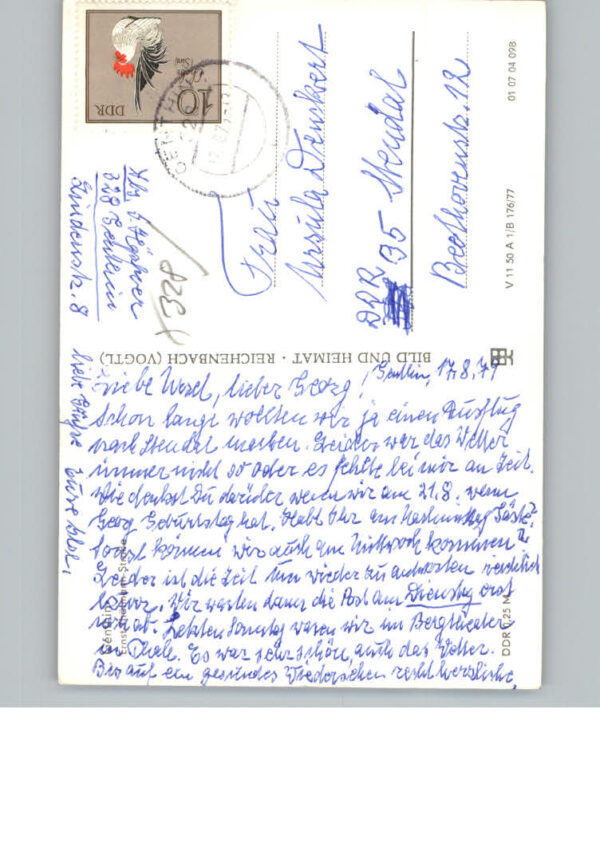 10
DDR
GENTHIN
Frau
Ursula Denckert
DDR 35 Stendal
Beethovenstr. 12
Abs.
328 Genthin
Lindenstr. 8
328
01 07 04 098
V 11 50 A 1/B 176/77
BILD UND HEIMAT · REICHENBACH (VOGTL)
Genthin, 17.8.79
Liebe Ursel, lieber Georg!
Schon lange wollten wir ja einen Ausflug
nach Stendal machen. Leider war das Wetter
immer nicht so oder es fehlte bei mir an Zeit.
Wie denkst Du darüber wenn wir am 21.8. wenn
Georg Geburtstag hat. Habt Ihr am Nachmittag Gäste?
Sonst können wir auch am Mittwoch kommen
Leider ist die Zeit zum wieder zu antworten
Wir warten dann die Post am Dienstag erst
ab. Letzten Sonntag waren wir im Bergtheater
in Thale. Es war sehr schön, auch das Wetter.
Bis auf ein gesundes Wiedersehen recht herzliche,
liebe Grüße Eure
Genthin
Ernst-Thälmann-Straße
DDR 0,25 M